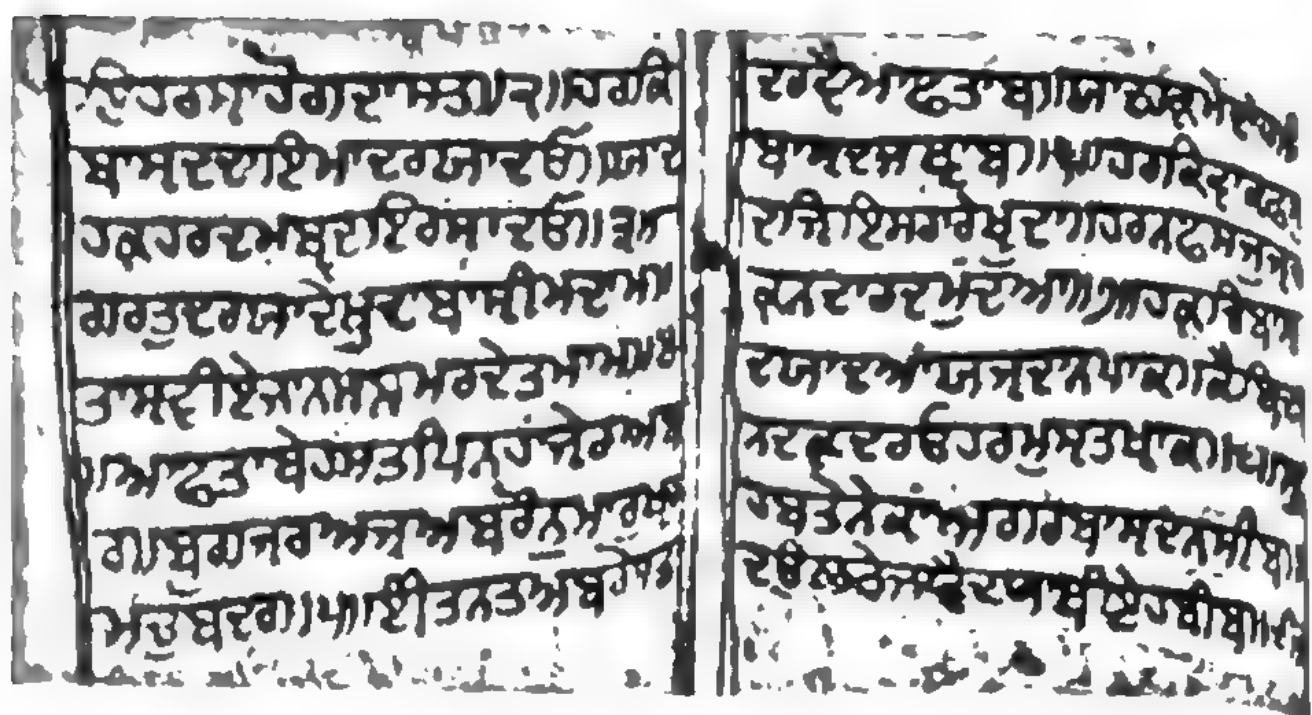 ਇਹਰਸ਼ਾਹੇਗਦਾਸਤ॥੨॥ਹਰਕਿ
ਬਾਸ਼ਦਦਾਇਮਾਦਰਯਾਦਓ॥ਯਾਦ
ਹਕਹਰਦਮਬੁਦਾਇਰਸ਼ਾਦਓ॥੩॥
ਗਰਤੁਦਰਯਾਦੇਖੁਦਾਬਾਸ਼ੀਮਦਾਮ
ਤਾਸ਼ਵੀਏਜਾਨਮਨਮਰਦੇਤਮਾਮ॥੪
॥ਆਫਤਾਬੇਹਸਤਪਿਨਹਾਂਜੇਰਅਬ
ਰ॥ਬੁਗਜਰਅਜ਼ਅਬਰੋਨੁਮਾਰੁਖ
ਮਚੁਬਦਰ॥੫॥ਈਤਨਤਅਬਰੇਸਤ
ਦਰਵੈਆਫਤਾਬ॥ਯਾਦਹਕੂਮੇਦਾਂ
ਬਾਸ਼ਦਸਬਾਬ॥੬॥ਹਰਕਿਵਾਕਫ
ਦਾਜਿਇਸਰਾਰੇਖੁਦਾ॥ਹਰਨਫਸਜੁਜ਼
ਕਨਦਾਰਦਮੁਦਆ॥੭॥ਹਕੂਚਿਬਾਸ਼
ਦਯਾਦਆਂਯਜ਼ਦਾਨਪਾਕ॥ਕੈਬਿਦਾ
ਨਦਕਦਰਓਹਰਮੁਸ਼ਤਖਾਕ॥੮॥ਸੁ
ਹਬਤੇਨੇਕਾਂਅਗਰਬਾਸ਼ਦਨਸੀਬ॥
ਦਉਲਤੇਜਾਵੈਦਯਾਬੀਏਹਬੀਬ॥੯॥